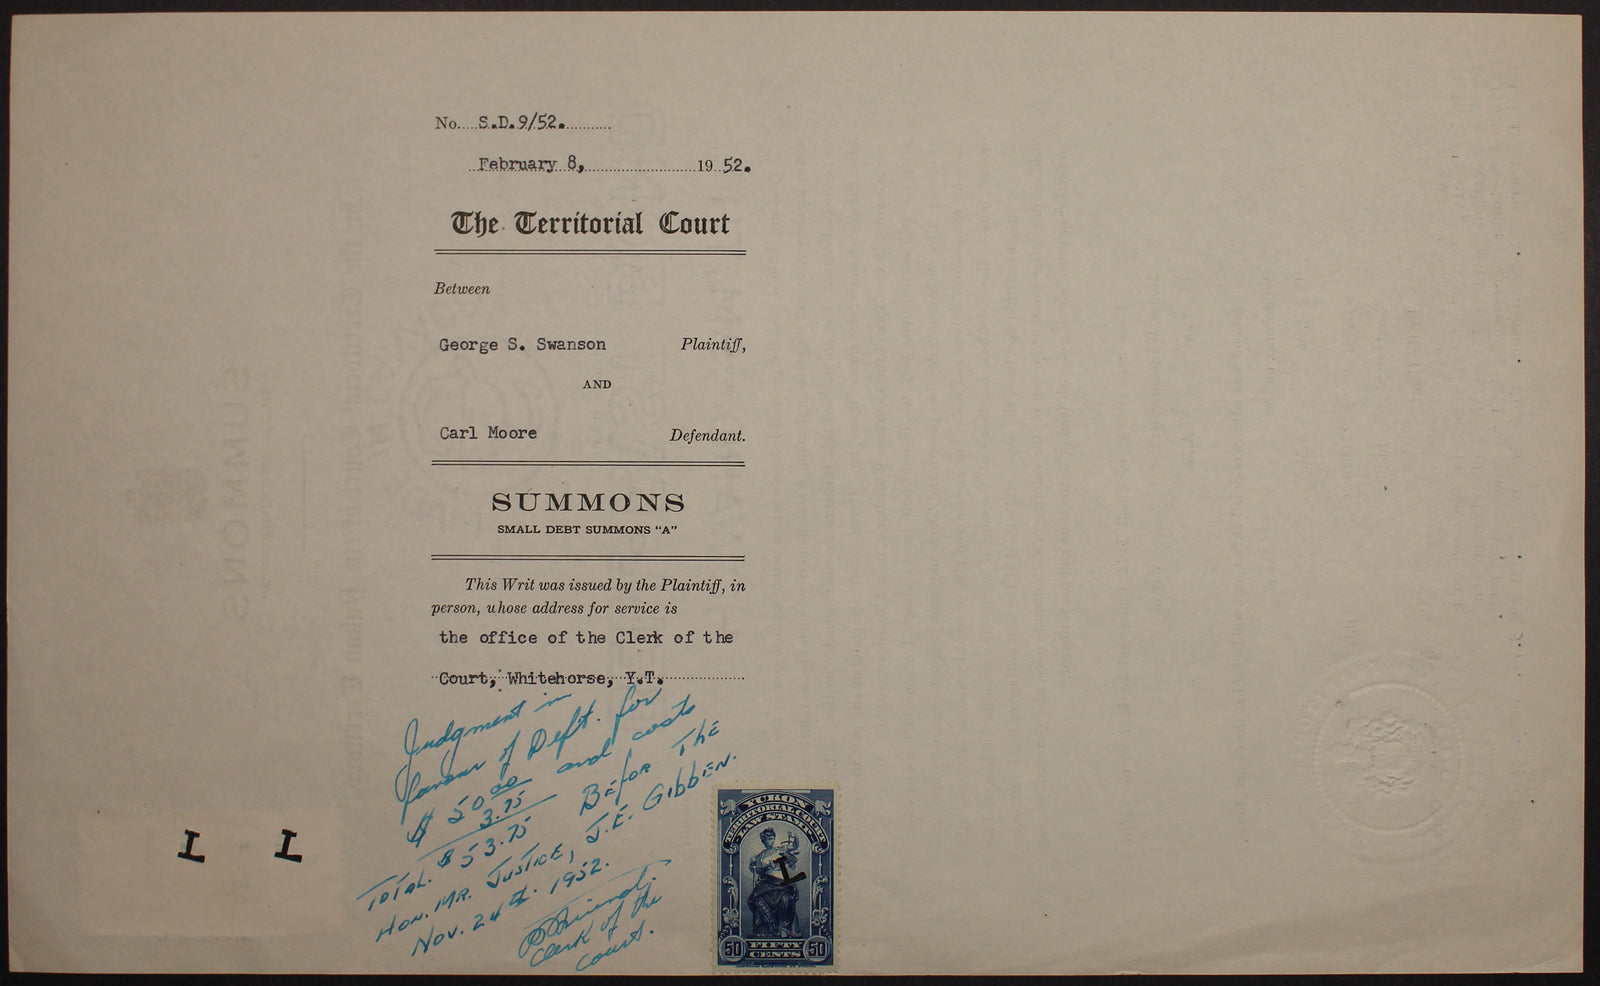 No. S.D.9/52.
February 8, 19 52.
The Territorial Court
Between
George S. Swanson Plaintiff,
AND
Carl Moore Defendant.
SUMMONS
SMALL DEBT SUMMONS "A"
This Writ was issued by the Plaintiff, in
person, whose address for service is
the office of the Clerk of the
Court, Whitehorse, Y.T.
Judgment in
favour of Deft. for
$ 50.00 and costs
3.75 BEFOR THE
TOTAL. $53.75
HON. MR. JUSTICE, J.E. GIBBEN.
NOV. 24th. 1952.
Clerk of the
Court.
YUKON
TERRITORIAL COURT
LAW STAMP
L
50 FIFTY CENTS 50
L L